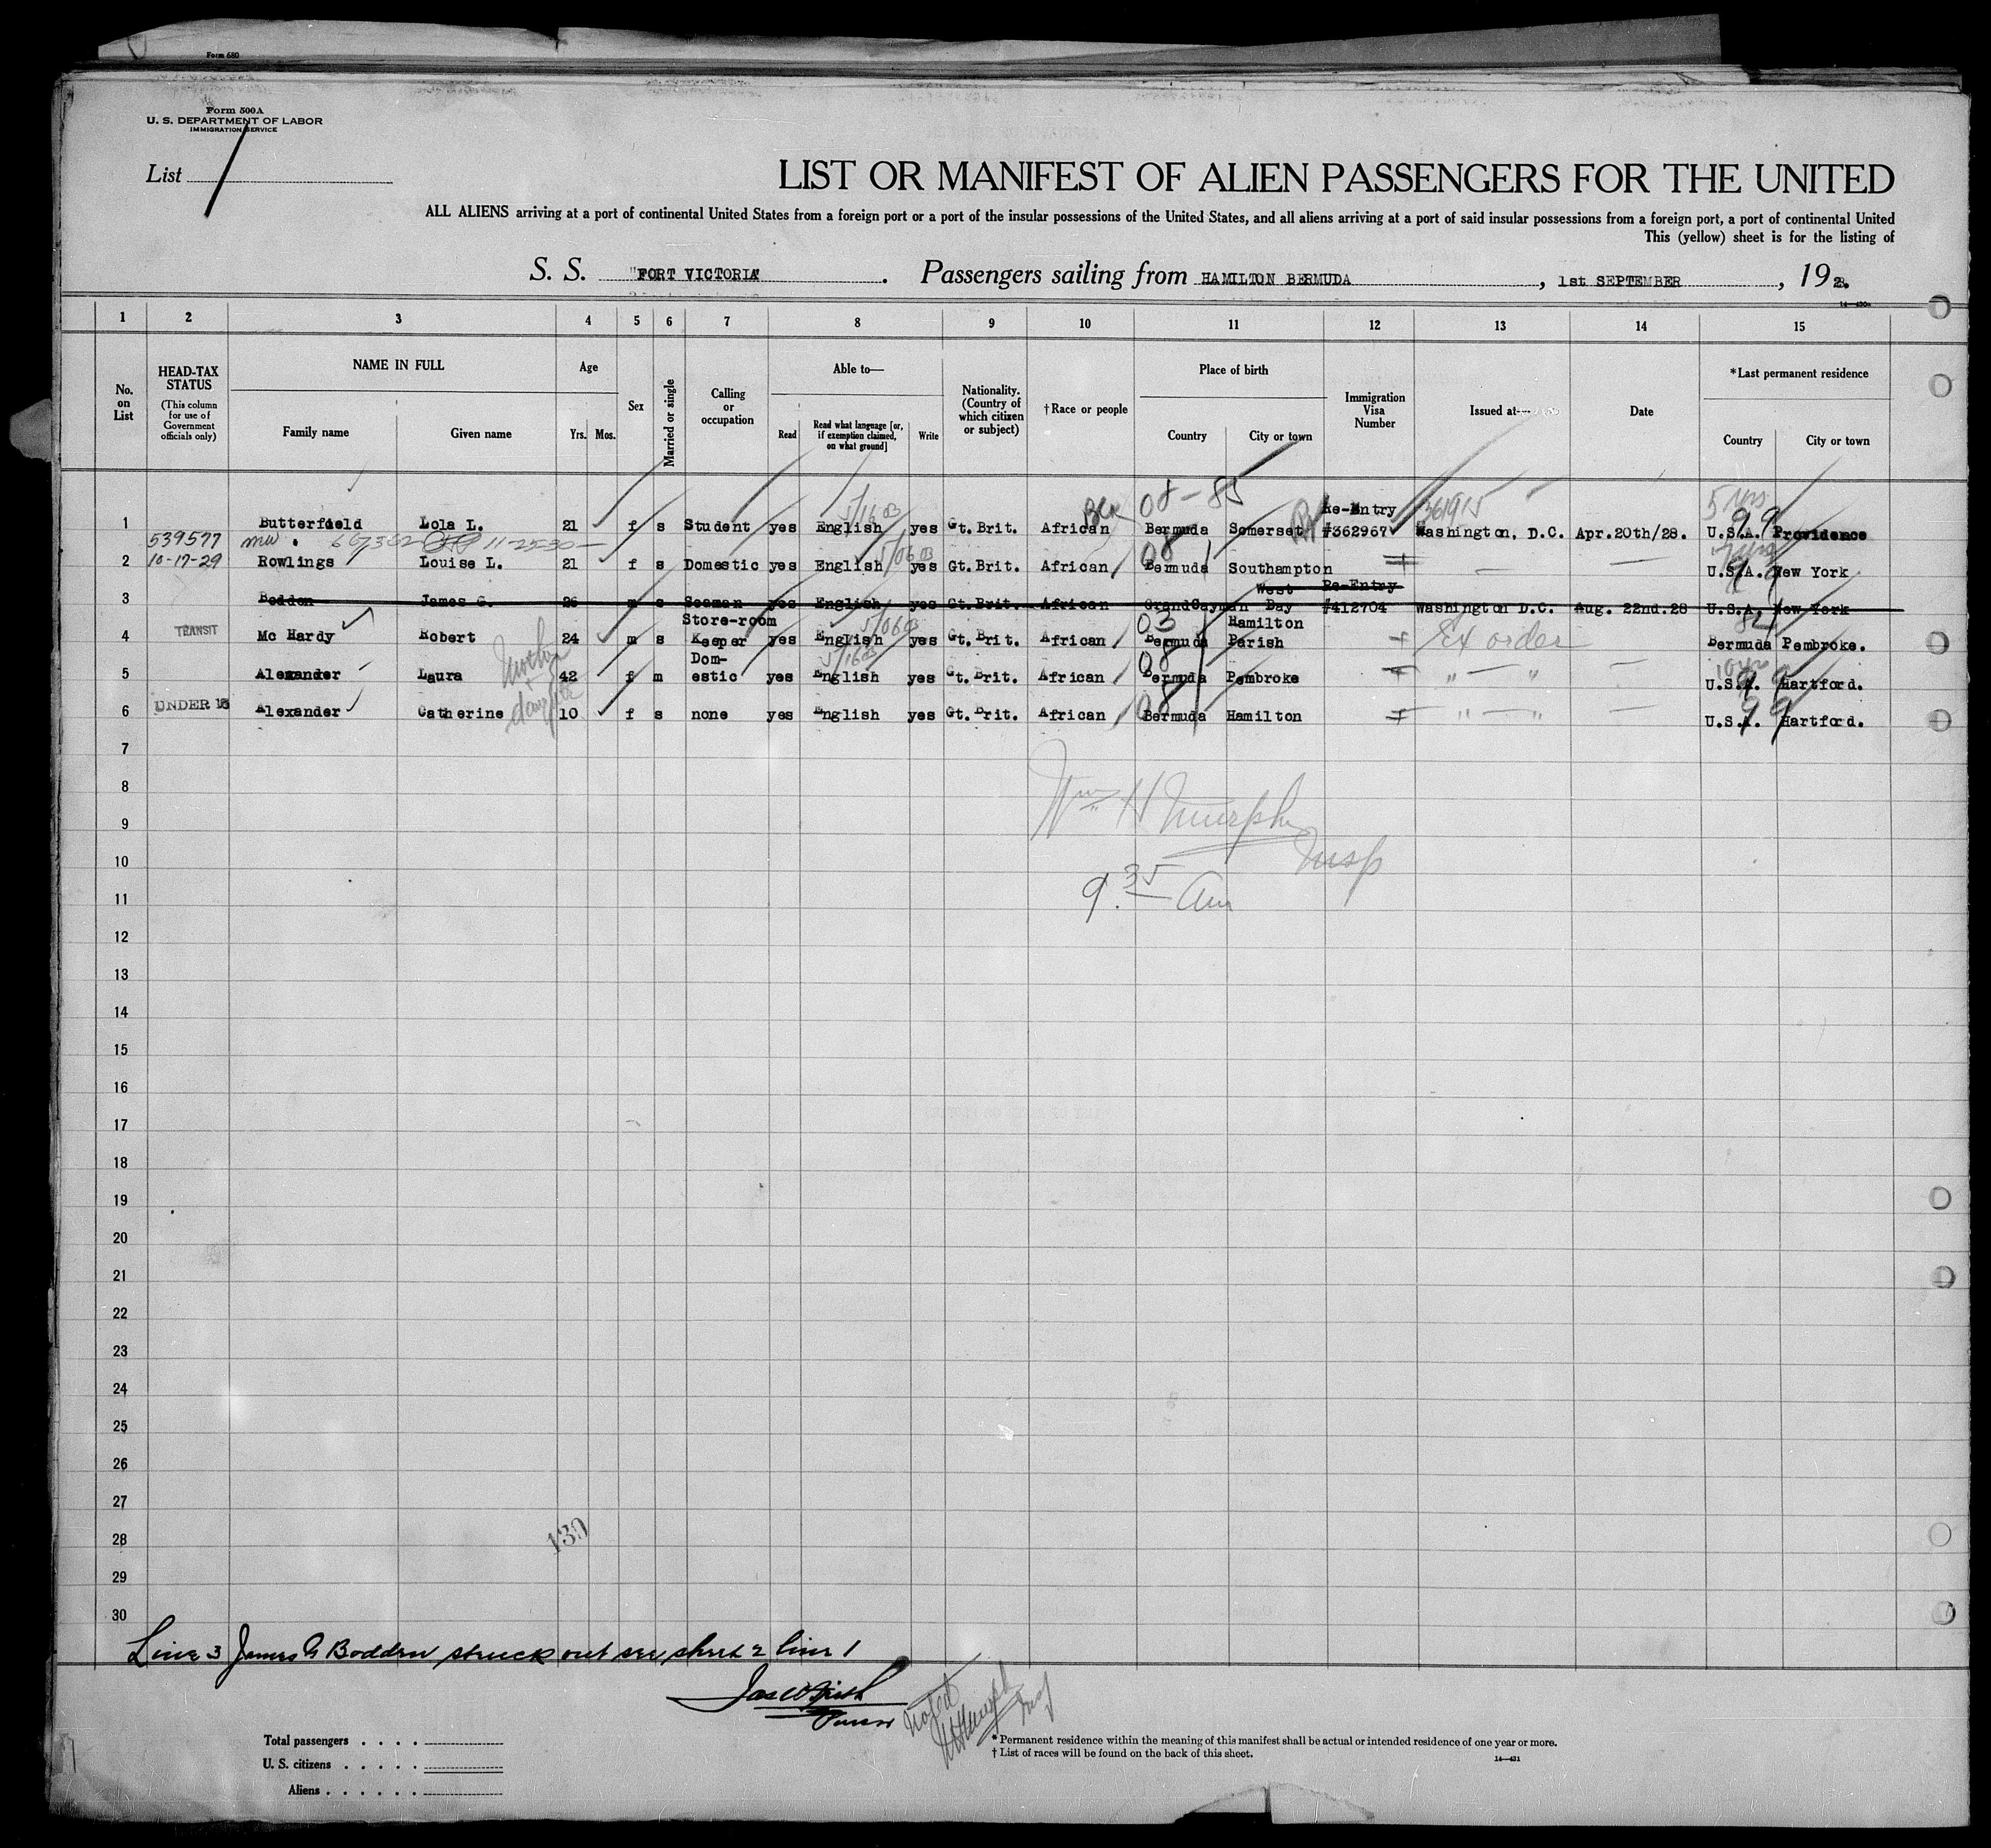 Form 680
Form 500A
U. S. DEPARTMENT OF LABOR
IMMIGRATION SERVICE
List 1
LIST OR MANIFEST OF ALIEN PASSENGERS FOR THE UNITED
ALL ALIENS arriving at a port of continental United States from a foreign port or a port of the insular possessions of the United States, and all aliens arriving at a port of said insular possessions from a foreign port, a port of continental United
This (yellow) sheet is for the listing of
S. S. "FORT VICTORIA" . Passengers sailing from HAMILTON BERMUDA , 1st SEPTEMBER , 1928.
1 2 3 4 5 6 7 8 9 10 11 12 13 14 15
No. on List
HEAD-TAX STATUS
(This column for use of Government officials only)
NAME IN FULL
Family name Given name
Age
Yrs. Mos.
Sex
Married or single
Calling or occupation
Able to—
Read
Read what language [or, if exemption claimed, on what ground]
Write
Nationality. (Country of which citizen or subject)
†Race or people
Place of birth
Country City or town
Immigration Visa Number
Issued at—
Date
*Last permanent residence
Country City or town
08 - 85 5 yrs
Re-Entry 361915
1 Butterfield Lola L. 21 f s Student yes English yes Gt.Brit. African Bermuda Somerset #362967 Washington, D.C. Apr.20th/28. U.S.A. Providence
539577 667362 11-25-30
10-17-29
2 Rowlings Louise L. 21 f s Domestic yes English yes Gt.Brit. African Bermuda Southampton U.S.A. New York
West Re-Entry
3 Bodden James G. 26 m s Seaman yes English yes Gt.Brit. African GrandCayman Bay #412704 Washington D.C. Aug. 22nd.28 U.S.A. New York
Store-room Hamilton
4 TRANSIT Mc Hardy Robert 24 m s Keeper yes English yes Gt.Brit. African Bermuda Parish Ex order Bermuda Pembroke.
Dom-
5 Alexander Laura Mother 42 f m estic yes English yes Gt.Brit. African Bermuda Pembroke " — " U.S.A. Hartford.
6 UNDER 16 Alexander Catherine 10 f s none yes English yes Gt.Brit. African Bermuda Hamilton " — " U.S.A. Hartford.
7
8
Wm H Murphy
9
Insp
10
9.35 am
11
12
13
14
15
16
17
18
19
20
21
22
23
24
25
26
27
28
130
29
30
Line 3 James G Bodden struck out see sheet 2 line 1
Purser
Noted
WHMurphy
Insp
Total passengers . . . .
U. S. citizens . . . . .
Aliens . . . . . .
* Permanent residence within the meaning of this manifest shall be actual or intended residence of one year or more.
† List of races will be found on the back of this sheet.
14—431